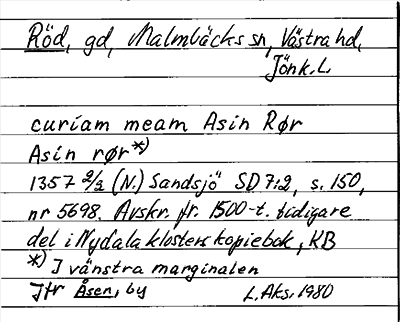 Röd, gd, Malmbäcks sn, Västra hd,
Jönk.L.
curiam meam Asin Rør
Asin rør*)
1357 2/2 (N.) Sandsjö SD 7:2, s. 150,
nr 5698. Avskr. fr. 1500-t. tidigare
del i Nydala klosters kopiebok, KB
*) I vänstra marginalen
Jfr Åsen, by L.Aks. 1980